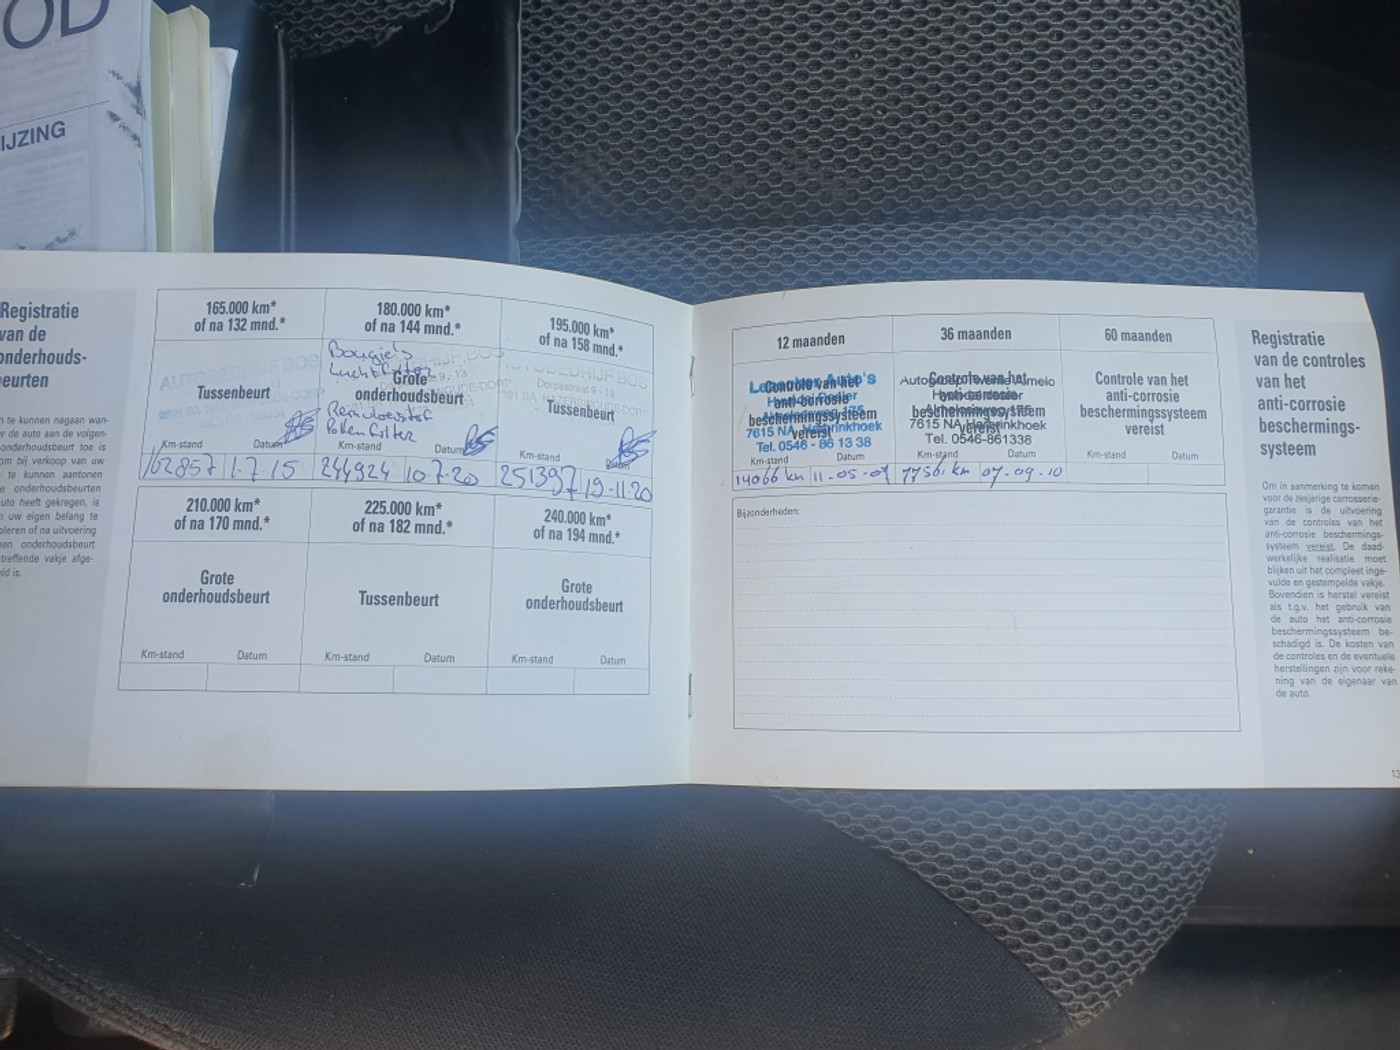 OD
IJZING
Registratie
van de
onderhouds-
beurten
n te kunnen nagaan wan-
er de auto aan de volgen-
onderhoudsbeurt toe is
om bij verkoop van uw
te kunnen aantonen
e onderhoudsbeurten
uto heeft gekregen, is
n uw eigen belang te
oleren of na uitvoering
een onderhoudsbeurt
treffende vakje afge-
eld is.
165.000 km*
of na 132 mnd.*
AUTOBEDRIJF BOS
Tussenbeurt
Km-stand Datum
162857 1.7.15
180.000 km*
of na 144 mnd.*
Bougie's
Luchtfilter
Grote
onderhoudsbeurt
Remvloeistof
Pollenfilter
Km-stand Datum
244924 10-7-20
195.000 km*
of na 158 mnd.*
AUTOBEDRIJF BOS
Dorpsstraat 9 - 13
HAZERSWOUDE-DORP
Tussenbeurt
Km-stand Datum
251397 19-11-20
210.000 km*
of na 170 mnd.*
Grote
onderhoudsbeurt
Km-stand Datum
225.000 km*
of na 182 mnd.*
Tussenbeurt
Km-stand Datum
240.000 km*
of na 194 mnd.*
Grote
onderhoudsbeurt
Km-stand Datum
12 maanden
Auto's
Controle van het
anti-corrosie
beschermingssysteem
vereist
7615 NA Harbrinkhoek
Tel. 0546 - 86 13 38
Km-stand Datum
14066 km 11-05-07
36 maanden
Autogroep Twente Almelo
Controle van het
anti-corrosie
beschermingssysteem
vereist
7615 NA Harbrinkhoek
Tel. 0546-861338
Km-stand Datum
km 07-09-10
60 maanden
Controle van het
anti-corrosie
beschermingssysteem
vereist
Km-stand Datum
Bijzonderheden:
Registratie
van de controles
van het
anti-corrosie
beschermings-
systeem
Om in aanmerking te komen
voor de zesjarige carrosserie-
garantie is de uitvoering
van de controles van het
anti-corrosie beschermings-
systeem vereist. De daad-
werkelijke realisatie moet
blijken uit het compleet inge-
vulde en gestempelde vakje.
Bovendien is herstel vereist
als t.g.v. het gebruik van
de auto het anti-corrosie
beschermingssysteem be-
schadigd is. De kosten van
de controles en de eventuele
herstellingen zijn voor reke-
ning van de eigenaar van
de auto.
13